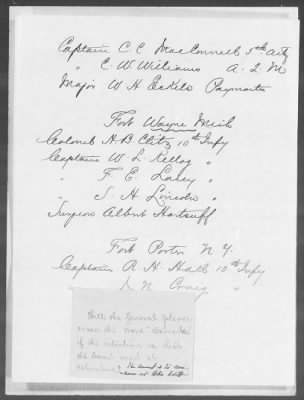 Captain C. C. MacConnell 5th Arty
" C. W. Williams A. Q. M
Major W. H. Eckels Paymaster
Fort Wayne Mich
Colonel H. B. Clitz 10th Infy
Captain W. L. Kellog "
" F. E. Lacey "
" S. H. Lincoln "
Surgeon Albert Hartsuff
Fort Porter N. Y.
Captain R. H. Hall 10th Infy
" J. N. Craig "
Will the General please
erase the word
of his intention
the Court meet at